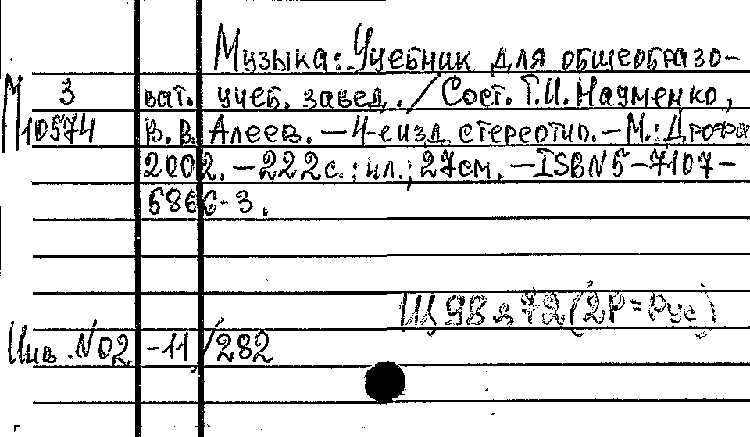 Музыка: Учебник для общеобразо-
М 3 ват. учеб. завед. / Сост. Т.И. Науменко,
10574 В.В. Алеев. – 4-е изд. стереотип. – М.: Дрофа
2002. – 222с.: ил.; 27см. – ISBN 5-7107-
5866-3.
Щ 98 я 72 (2Р=Рус)
Инв. №02-11/282